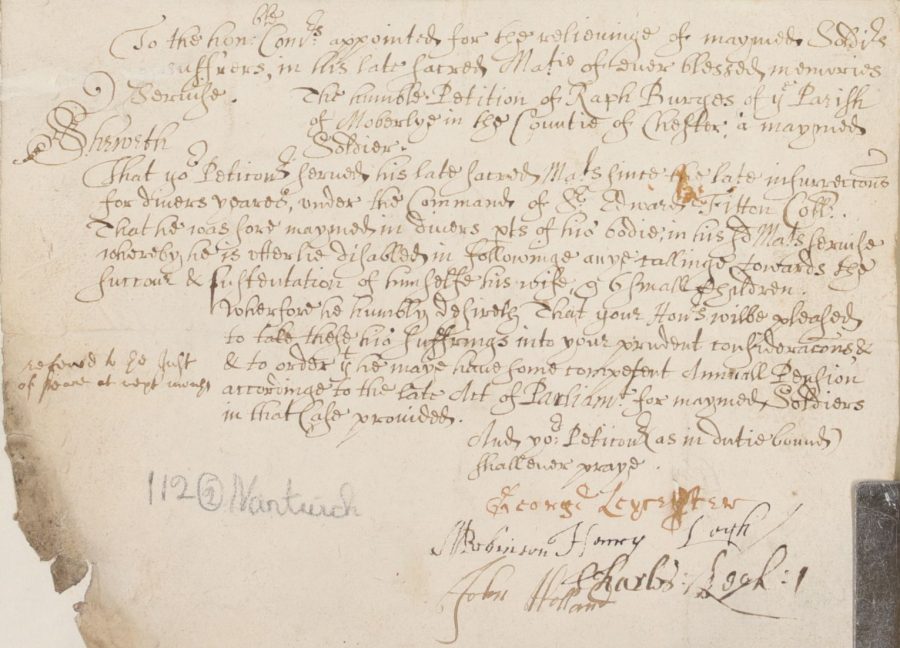 To the hon:ble Com:rs appointed for the relieveinge of maymed Soldirs
suffrers, in his late sacred Matie of ever blessed memories
Servise. The humble Petition of Raph Burges of ye Parish
of Moberlye in the Countie of Chester; a maymed
Sheweth Soldier.
That yor Peticonr served his late sacred Mats since the late insurrectons
for divers yeares, under the Command of Sr Edward Fitton Coll:.
That he was sore maymed in divers pts of his bodie; in his sd Mats servise
whereby he is utterlie disabled in followinge anye callinge towards the
succour & sustentation of himselfe his wife & 6 small Children.
Wherfore he humbly desireth That your Honrs wilbe pleased
to take these his suffrings into your prudent consideracons &
& to order yt he maye have some competent Annuall Pension
accordinge to the late Act of Parliamt for maymed Soldiers
in that Case provided.
referred to ye Just
of peace at next monthly
And yor Peticonr (as in dutie bound)
shall ever praye.
George Leycester
Robinson Henry Legh
John Holland Charles: Legh: 1
112 (2) Nantwich